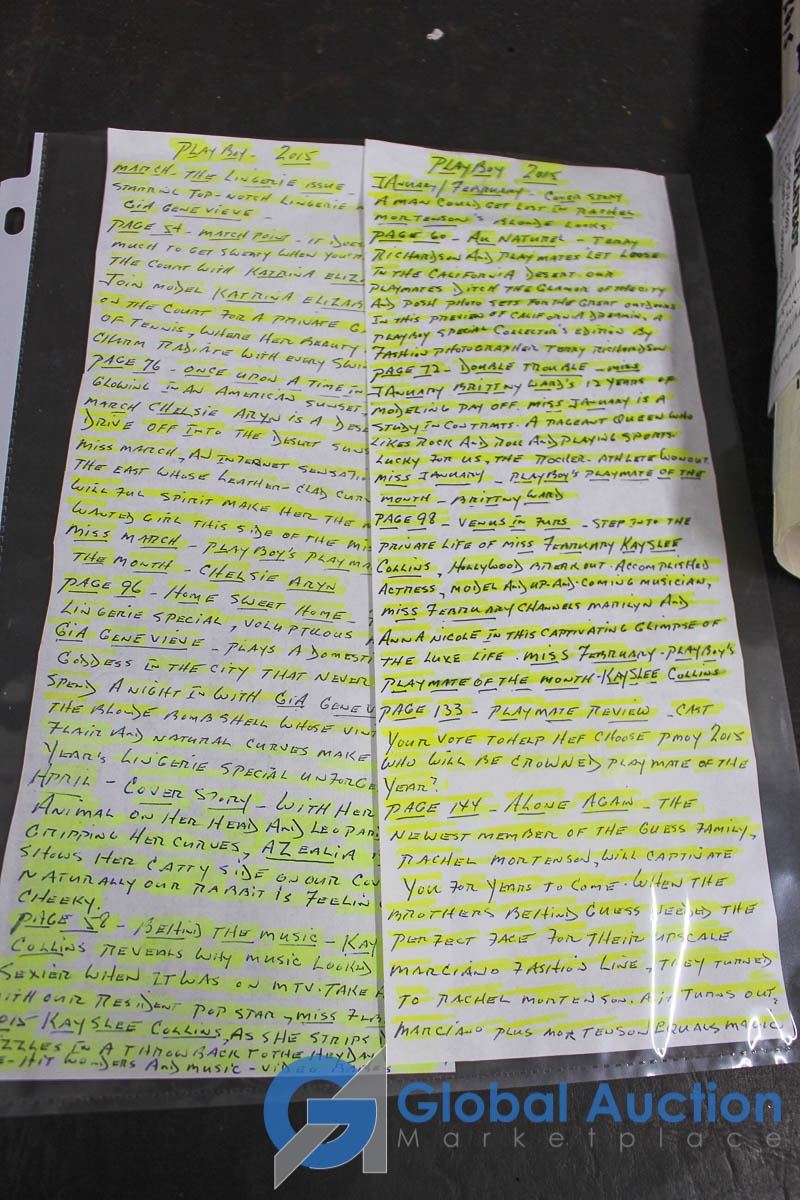 PLAYBOY - 2015
MARCH - THE LINGERIE ISSUE -
STARRING TOP-NOTCH LINGERIE
GIA GENEVIEVE -
PAGE 54 - MATCH POINT - IT DOES
MUCH TO GET SWEATY WHEN YOU'R
THE COURT WITH KATRINA ELIZA
JOIN MODEL KATRINA ELIZAB
ON THE COURT FOR A PRIVATE G
OF TENNIS, WHERE HER BEAUTY
CHARM RADIATE WITH EVERY SWI
PAGE 76 - ONCE UPON A TIME IN
GLOWING IN AN AMERICAN SUNSET
MARCH CHELSIE ARYN IS A DESE
DRIVE OFF INTO THE DESERT SUNS
MISS MARCH, AN INTERNET SENSATIO
THE EAST WHOSE LEATHER-CLAD CURV
WILLFUL SPIRIT MAKE HER THE
WANTED GIRL THIS SIDE OF THE MIS
MISS MARCH - PLAYBOY'S PLAYMA
THE MONTH - CHELSIE ARYN
PAGE 96 - HOME SWEET HOME -
LINGERIE SPECIAL, VOLUPTUOUS
GIA GENEVIEVE - PLAYS A DOMESTI
GODDESS IN THE CITY THAT NEVER
SPEND A NIGHT IN WITH GIA GENEV
THE BLONDE BOMBSHELL WHOSE VINT
FLAIR AND NATURAL CURVES MAKE
YEAR'S LINGERIE SPECIAL UNFORGE
APRIL - COVER STORY - WITH HER
ANIMAL ON HER HEAD AND LEOPAR
GRIPPING HER CURVES, AZEALIA
SHOWS HER CATTY SIDE ON OUR COV
NATURALLY OUR RABBIT IS FEELIN
CHEEKY.
PAGE 58 - BEHIND THE MUSIC - KAY
COLLINS REVEALS WHY MUSIC LOOKED
SEXIER WHEN IT WAS ON MTV. TAKE A
WITH OUR RESIDENT POP STAR, MISS FEB
015 KAYSLEE COLLINS, AS SHE STRIPS
ZZLES IN A THROWBACK TO THE HEYDAY
E-HIT WONDERS AND MUSIC - VIDEO BABES
PLAYBOY 2015
JANUARY/FEBRUARY - COVER STORY
A MAN COULD GET LOST IN RACHEL
MORTENSON'S BLONDE LOOKS.
PAGE 60 - AU NATUREL - TERRY
RICHARDSON AND PLAYMATES LET LOOSE
IN THE CALIFORNIA DESERT. OUR
PLAYMATES DITCH THE GLAMOR OF THE CITY
AND POSH PHOTO SETS FOR THE GREAT OUTDOORS
IN THIS PREVIEW OF CALIFORNIA DREAMING, A
PLAYBOY SPECIAL COLLECTOR'S EDITION BY
FASHION PHOTOGRAPHER TERRY RICHARDSON
PAGE 72 - DOUBLE TROUBLE - MISS
JANUARY BRITTNY WARD'S 12 YEARS OF
MODELING PAY OFF. MISS JANUARY IS A
STUDY IN CONTRASTS. A PAGEANT QUEEN WHO
LIKES ROCK AND ROLL AND PLAYING SPORTS.
LUCKY FOR US, THE ROCKER-ATHLETE WON OUT.
MISS JANUARY - PLAYBOY'S PLAYMATE OF THE
MONTH - BRITTNY WARD
PAGE 98 - VENUS IN FURS - STEP INTO THE
PRIVATE LIFE OF MISS FEBRUARY KAYSLEE
COLLINS, HOLLYWOOD BREAKOUT. ACCOMPLISHED
ACTRESS, MODEL AND UP-AND-COMING MUSICIAN,
MISS FEBRUARY CHANNELS MARILYN AND
ANNA NICOLE IN THIS CAPTIVATING GLIMPSE OF
THE LUXE LIFE. MISS FEBRUARY - PLAYBOY'S
PLAYMATE OF THE MONTH - KAYSLEE COLLINS
PAGE 133 - PLAYMATE REVIEW - CAST
YOUR VOTE TO HELP HEF CHOOSE PMOY 2015
WHO WILL BE CROWNED PLAYMATE OF THE
YEAR?
PAGE 144 - ALONE AGAIN - THE
NEWEST MEMBER OF THE GUESS FAMILY,
RACHEL MORTENSON, WILL CAPTIVATE
YOU FOR YEARS TO COME. WHEN THE
BROTHERS BEHIND GUESS NEEDED THE
PERFECT FACE FOR THEIR UPSCALE
MARCIANO FASHION LINE, THEY TURNED
TO RACHEL MORTENSON. AS IT TURNS OUT,
MARCIANO PLUS MORTENSON EQUALS MAGIC
Global Auction
Marketplace